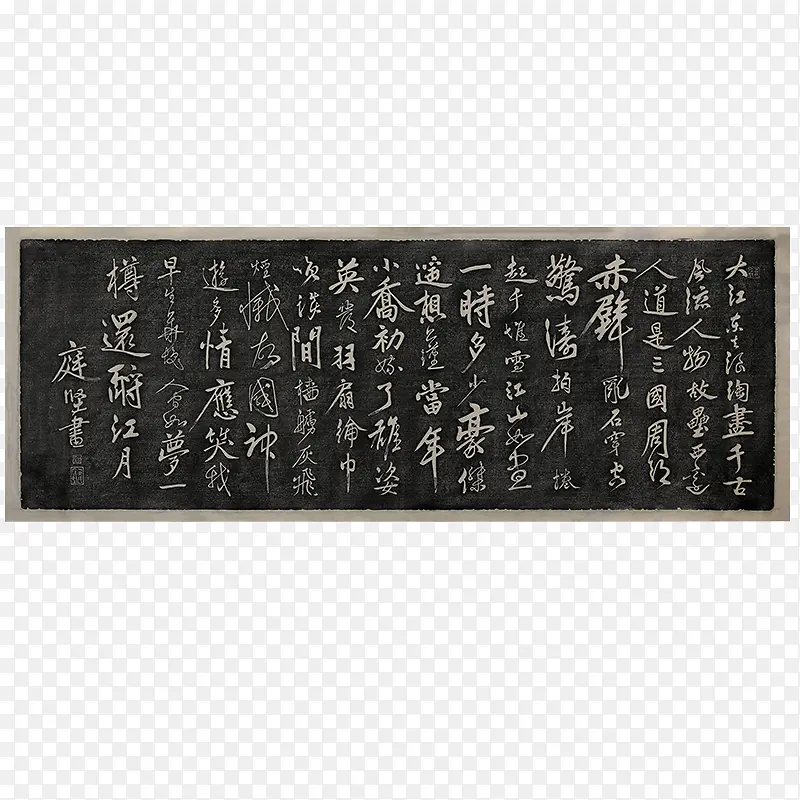 大江東去浪淘盡千古
風流人物故壘西邊
人道是三國周郎
赤壁亂石穿空
驚濤拍岸捲
起千堆雪江山如畫
一時多少豪傑
遥想公瑾當年
小喬初嫁了雄姿
英發羽扇綸巾
笑談間檣艣灰飛
煙滅故國神
遊多情應笑我
早生華髮人間如夢一
樽還酹江月
庭堅書